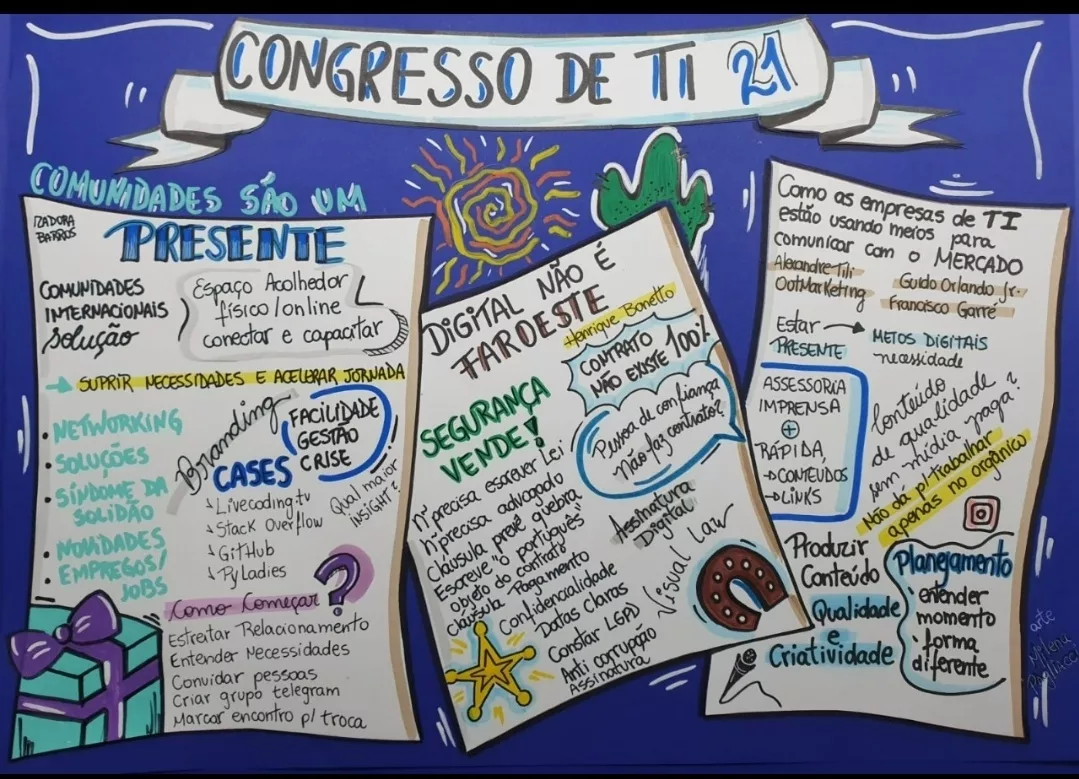 CONGRESSO DE TI 21
COMUNIDADES SÃO UM
PRESENTE
IZADORA
BARROS
COMUNIDADES
INTERNACIONAIS
Solução
Espaço Acolhedor
físico/online
conectar e capacitar
→ SUPRIR NECESSIDADES E ACELERAR JORNADA
• NETWORKING
• SOLUÇÕES
• SÍNDOME DA
SOLIDÃO
• NOVIDADES
• EMPREGOS/
JOBS
Branding
FACILIDADE
GESTÃO
CRISE
CASES
Livecoding.tv
Stack Overflow
GitHub
PyLadies
Qual maior
INSIGHT?
Como Começar?
Estreitar Relacionamento
Entender Necessidades
Convidar pessoas
Criar grupo telegram
Marcar encontro p/ troca
DIGITAL NÃO É
FAROESTE
Henrique Bonetto
CONTRATO
NÃO EXISTE 100%
SEGURANÇA
VENDE!
Pessoa de confiança
não faz contrato?
nº precisa escrever Lei
nº precisa advogado
Cláusula prevê quebra
Escreve "o português"
objeto do contrato
cláusula Pagamento
Confidencialidade
Datas Claras
Constar LGPD
Anti corrupção
Assinatura
Assinatura
Digital
Vesual Law
Como as empresas de TI
estão usando meios para
comunicar com o MERCADO
Alexandre Tili
OutMarketing
Guido Orlando Jr.
Francisco Garré
Estar → METOS DIGITAIS
PRESENTE necessidade
ASSESSORIA
IMPRENSA
+
RÁPIDA,
→CONTEUDOS
→LINKS
Conteúdo
de qualidade
sem mídia paga?
Não dá p/ trabalhar
apenas no orgânico
Produzir
Conteúdo
Qualidade
e
Criatividade
Planejamento
· entender
momento
· forma
diferente
arte